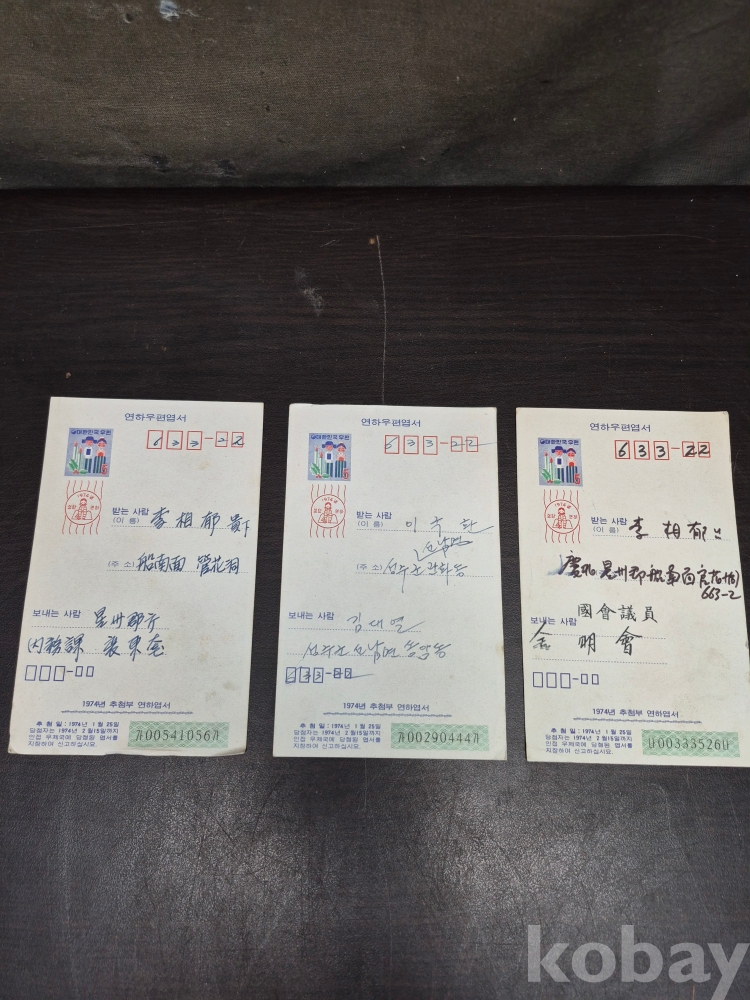 연하우편엽서
대한민국우표
633-22
1974년
받는 사람
(이 름) 李相郁 貴下
(주 소) 船南面 管花洞
보내는 사람 星州郡庁
内務課 裵東
1974년 추첨부 연하엽서
추 첨 일 : 1974년 1월 25일
당첨자는 1974년 2월15일까지
인접 우체국에 당첨된 엽서를
지참하여 신고하십시요.
가00541056가
연하우편엽서
대한민국우표
633-22
1974년
받는 사람
(이 름)
선남면
(주 소) 성주군 관화동
보내는 사람 김대열
성주군 선남면
633-22
1974년 추첨부 연하엽서
추 첨 일 : 1974년 1월 25일
당첨자는 1974년 2월15일까지
인접 우체국에 당첨된 엽서를
지참하여 신고하십시요.
가00290444가
연하우편엽서
대한민국우표
633-22
1974년
받는 사람
(이 름) 李相郁
慶北 星州郡 船南面 官花洞
663-2
보내는 사람 國會議員
金明會
1974년 추첨부 연하엽서
추 첨 일 : 1974년 1월 25일
당첨자는 1974년 2월15일까지
인접 우체국에 당첨된 엽서를
지참하여 신고하십시요.
마00333526마
kobay